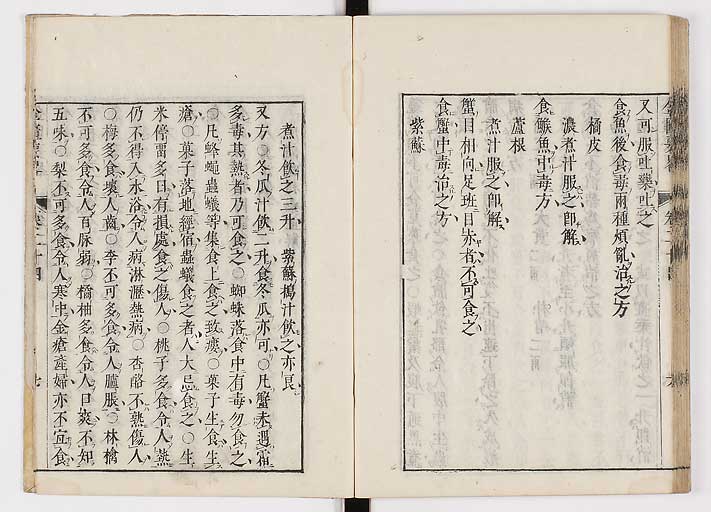 又可服吐藥吐之
食魚後食毒兩種煩亂治之方
橘皮
濃煮汁服之即解
食鯸魚中毒方
蘆根
煮汁服之即解
蟹目相向足班目赤者不可食之
食蟹中毒治之方
紫蘇
煮汁飲之三升 紫蘇搗汁飲之亦良
又方○冬瓜汁飲二升食冬瓜亦可○凡蟹未遇霜
多毒其熟者乃可食之○蜘蛛落食中有毒勿食之
○凡蜂蠅蟲蟻等集食上食之致瘻○菓子生食生
瘡○菓子落地經宿蟲蟻食之者人大忌食之○生
米停留多日有損處食之傷人○桃子多食令人熱
仍不得入水浴令人病淋瀝熱病○杏酪不熟傷人
○梅多食壞人齒○李不可多食令人臚脹○林檎
不可多食令人百脉弱○橘柚多食令人口爽不知
五味○梨不可多食令人寒中金瘡產婦亦不宜食
卷二十四
七